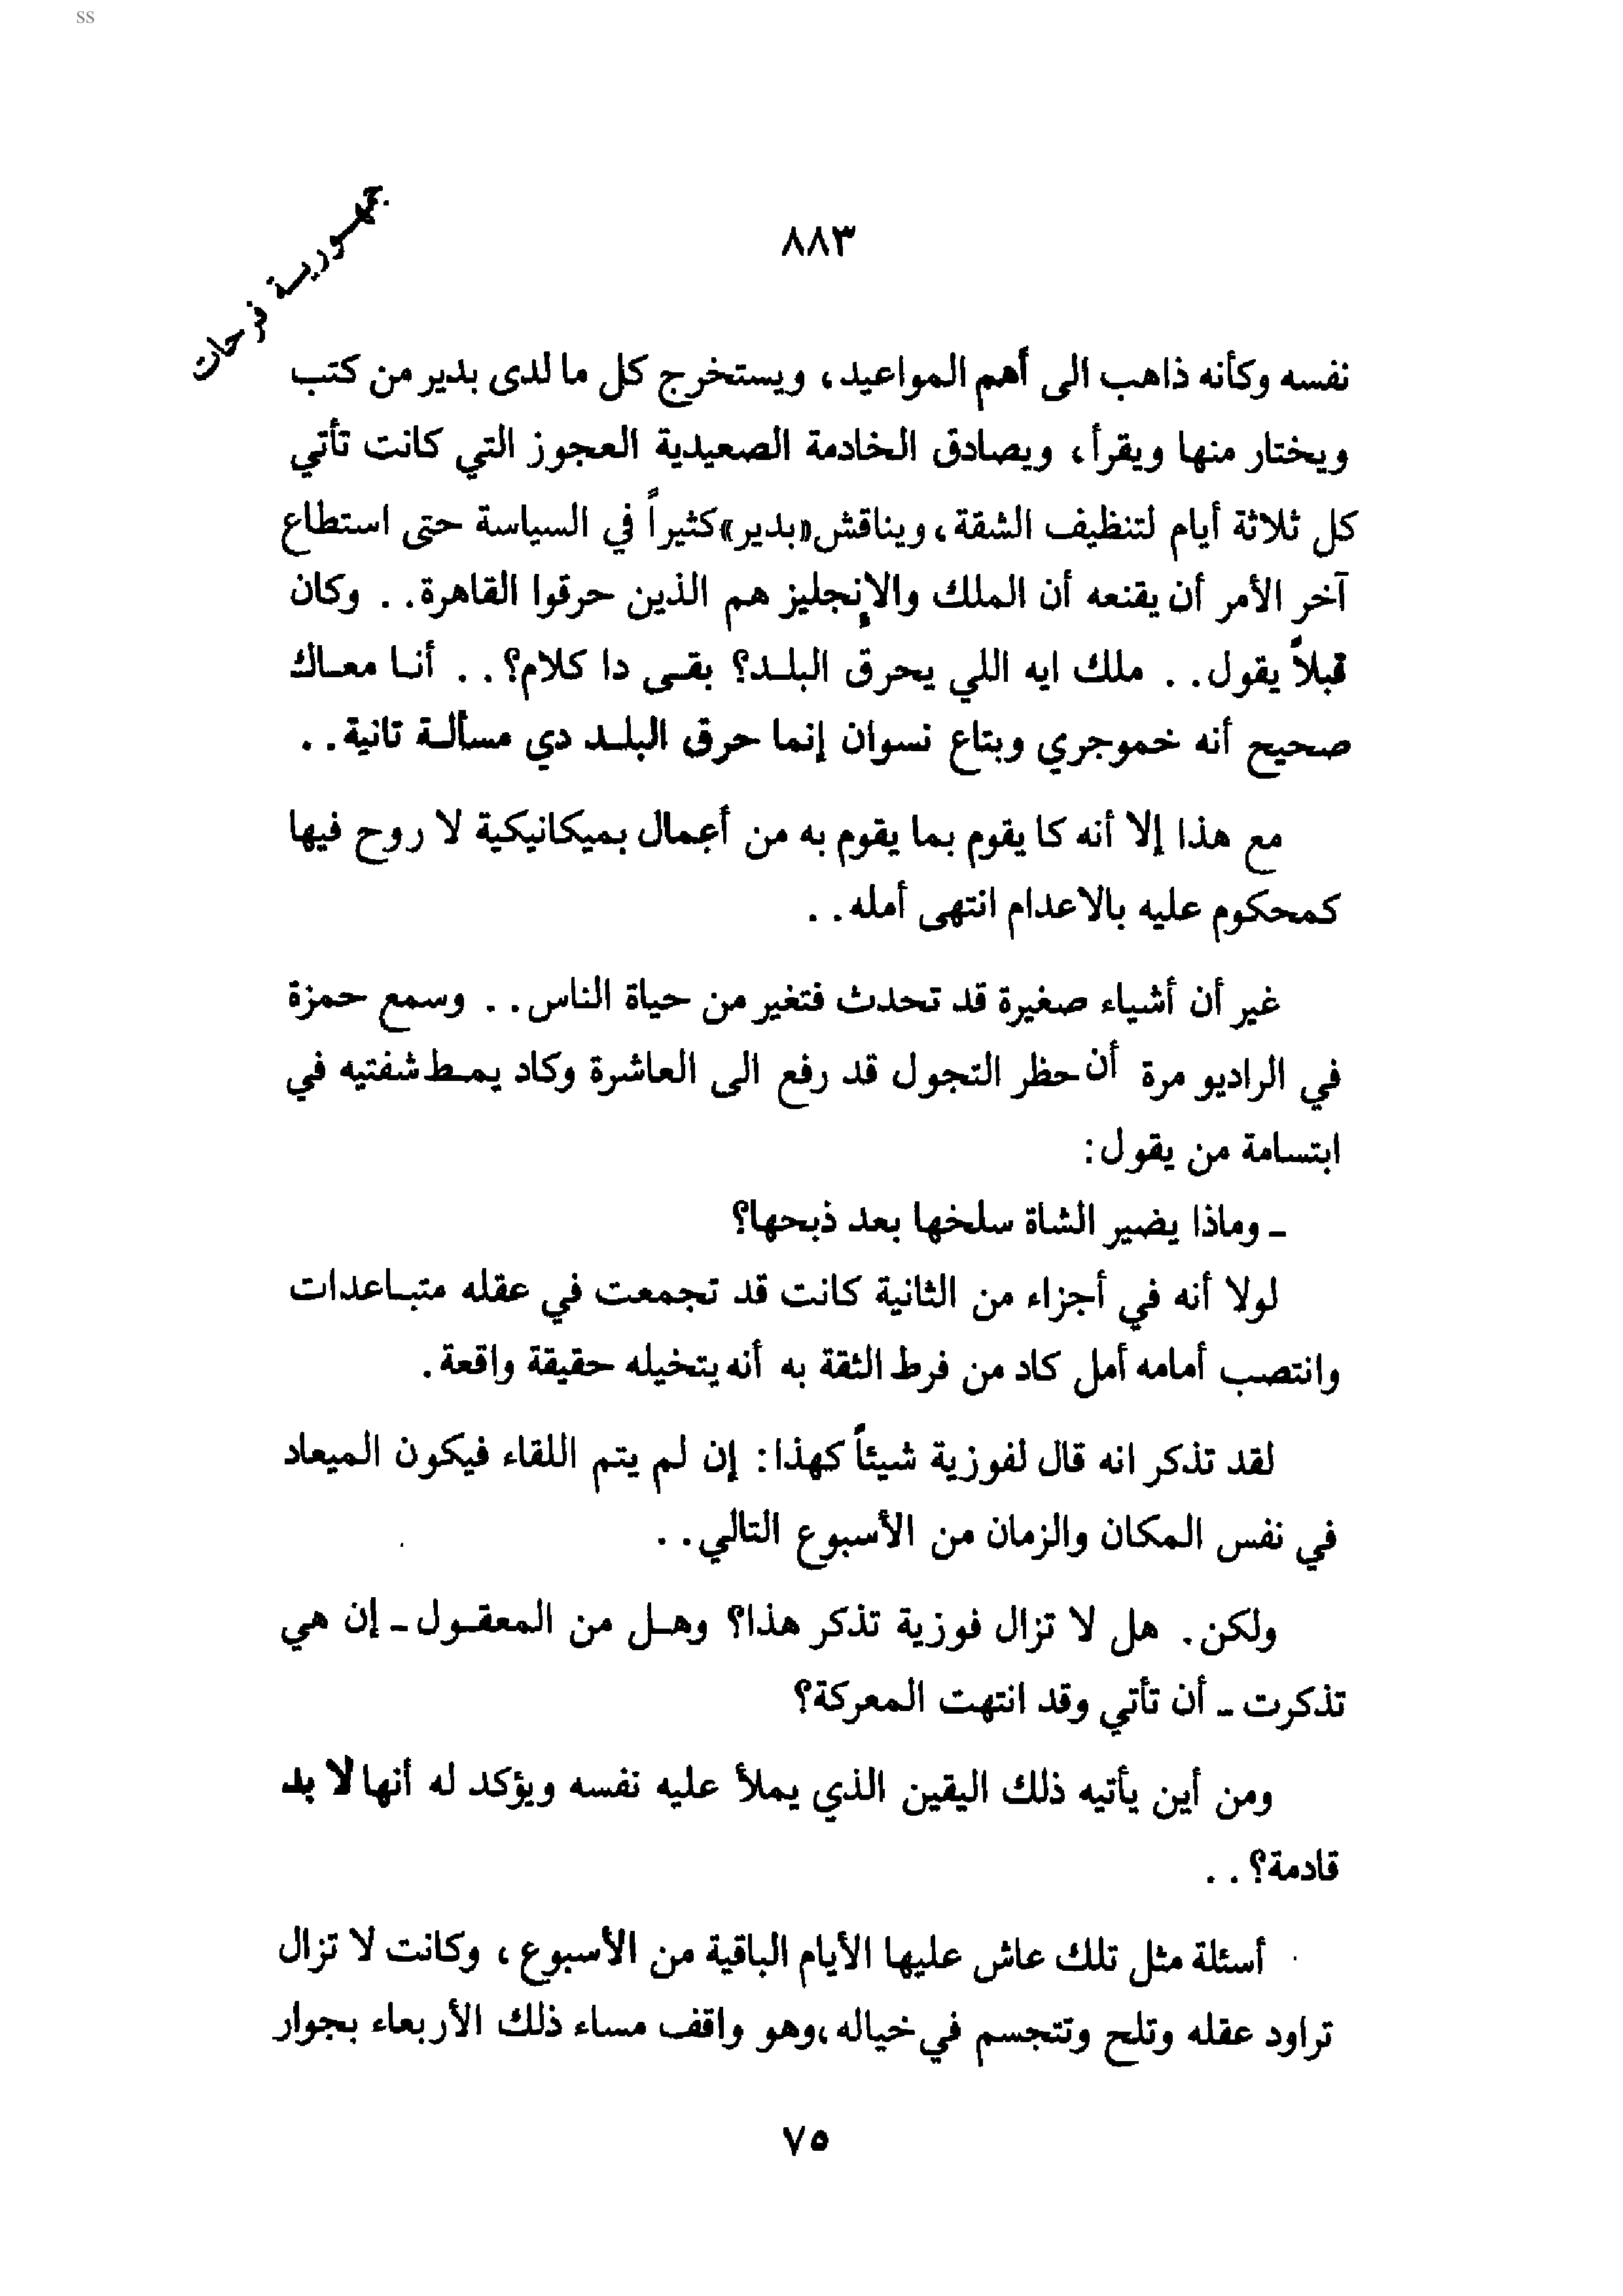 ss
٨٨٣
جمهورية فرحات
نفسه وكأنه ذاهب الى أهم المواعيد، ويستخرج كل ما لدى بدير من كتب
ويختار منها ويقرأ، ويصادق الخادمة الصعيدية العجوز التي كانت تأتي
كل ثلاثة أيام لتنظيف الشقة، ويناقش «بدير» كثيراً في السياسة حتى استطاع
آخر الأمر أن يقنعه أن الملك والإنجليز هم الذين حرقوا القاهرة.. وكان
قبلاً يقول.. ملك ايه اللي يحرق البلد؟ بقى دا كلام؟.. أنا معاك
صحيح أنه خموجري وبتاع نسوان إنما حرق البلد دي مسألة تانية..
مع هذا إلا أنه كا يقوم بما يقوم به من أعمال بميكانيكية لا روح فيها
كمحكوم عليه بالاعدام انتهى أمله..
غير أن أشياء صغيرة قد تحدث فتغير من حياة الناس.. وسمع حمزة
في الراديو مرة أن حظر التجول قد رفع الى العاشرة وكاد يمط شفتيه في
ابتسامة من يقول:
ـ وماذا يضير الشاة سلخها بعد ذبحها؟
لولا أنه في أجزاء من الثانية كانت قد تجمعت في عقله متباعدات
وانتصب أمامه أمل كاد من فرط الثقة به أنه يتخيله حقيقة واقعة.
لقد تذكر انه قال لفوزية شيئاً كهذا: إن لم يتم اللقاء فيكون الميعاد
في نفس المكان والزمان من الأسبوع التالي..
ولكن. هل لا تزال فوزية تذكر هذا؟ وهل من المعقول ـ إن هي
تذكرت ـ أن تأتي وقد انتهت المعركة؟
ومن أين يأتيه ذلك اليقين الذي يملأ عليه نفسه ويؤكد له أنها لا بد
قادمة؟..
أسئلة مثل تلك عاش عليها الأيام الباقية من الأسبوع، وكانت لا تزال
تراود عقله وتلح وتتجسم في خياله، وهو واقف مساء ذلك الأربعاء بجوار
٧٥